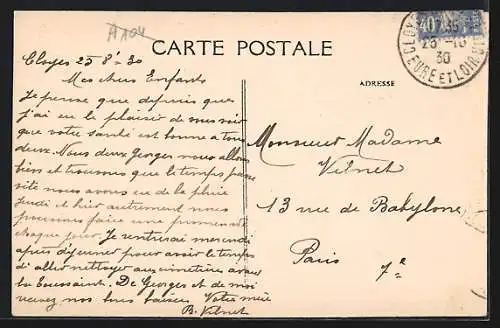 A104
CARTE POSTALE
40c
25 -10
30
EURE ET LOIR
ADRESSE
Cloyes 25 8e 30
Mes chers Enfants
Je pense que depuis que
j'ai eu le plaisir de vous voir
que votre santé est bonne a tous
deux. Nous deux Georges nous allons
bien et trouvons que le temps passe
vite nous avons eu de la pluie
jeudi et hier autrement nous
pouvons faire une promenade
chaque jour. Je rentrerai mercredi
après déjeuner pour avoir le temps
d aller nettoyer aux cimetières avant
la Toussaint. De Georges et de moi
recevez nos bons baisers. Votre mère
B. Vilnet
Monsieur Madame
Vilnet
13 rue de Babylone
Paris 7e